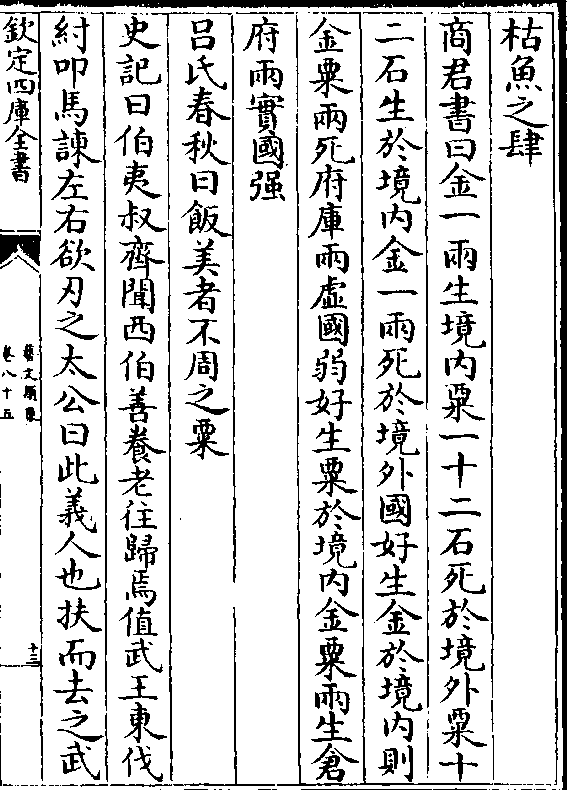 枯魚之肆
商君書曰金一兩生境内粟一十二石死於境外粟十
二石生於境内金一兩死於境外國好生金於境内則
金粟兩死府庫兩虛國弱好生粟於境内金粟兩生倉
府兩實國强
吕氏春秋曰飯美者不周之粟
史記曰伯夷叔齊聞西伯善養老往歸焉值武王東伐
紂叩馬諫左右欲刃之太公曰此義人也扶而去之武
欽定四庫全書
藝文類聚
卷八十五
十三